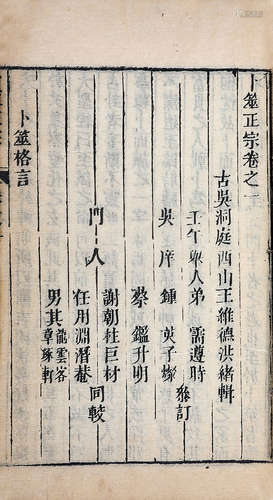 卜筮正宗卷之一
古吳洞庭西山王維德洪緒輯
壬午舉人弟 需遵時
吳庠 鍾英子燦 叅訂
蔡鑑升明
門人 謝朝柱巨材
任用淵潛菴 同較
男其龍雲客
章琢軒
卜筮格言